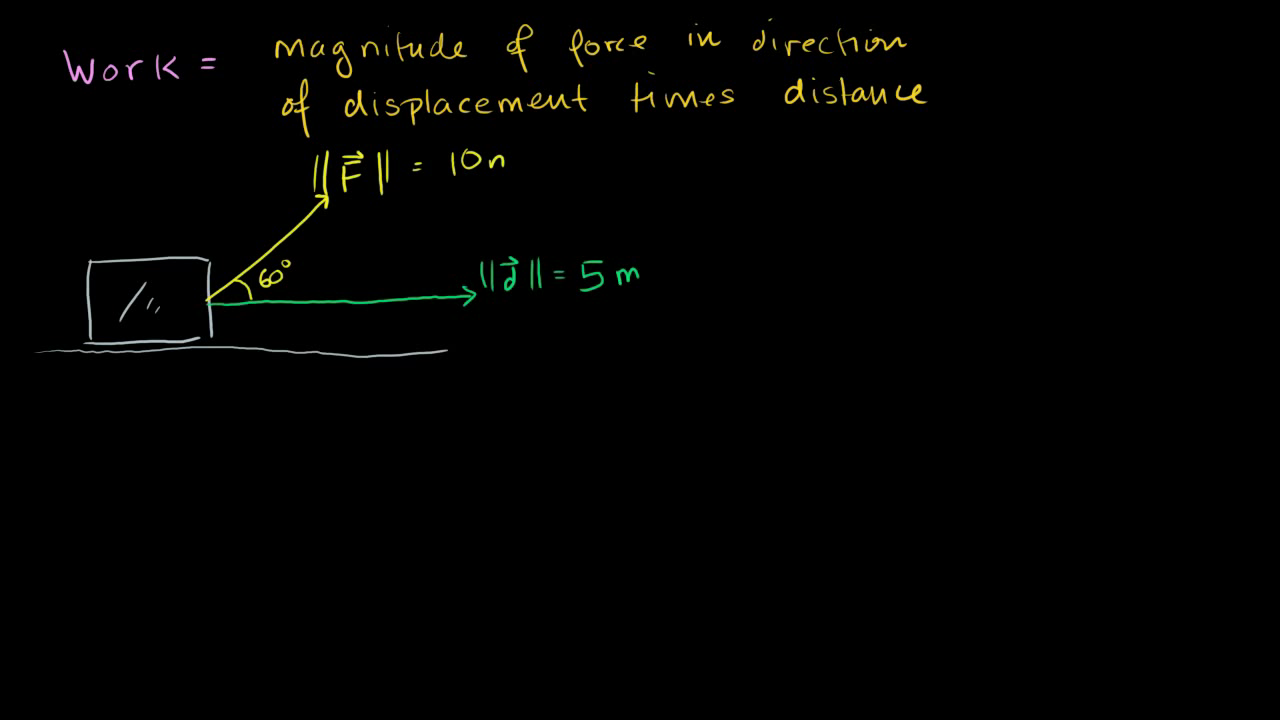 Work = magnitude of force in direction
of displacement times distance
||F⃗|| = 10n
60°
||d⃗|| = 5 m